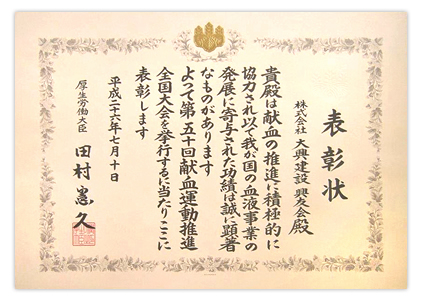 表彰状
株式会社 大興建設 興友会殿
貴殿は献血の推進に積極的に
協力され以て我が国の血液事業の
発展に寄与された功績は誠に顕著
なものがあります
よって第五十回献血運動推進
全国大会を挙行するに当たりここに
表彰します
平成二十六年七月十日
厚生労働大臣 田村憲久